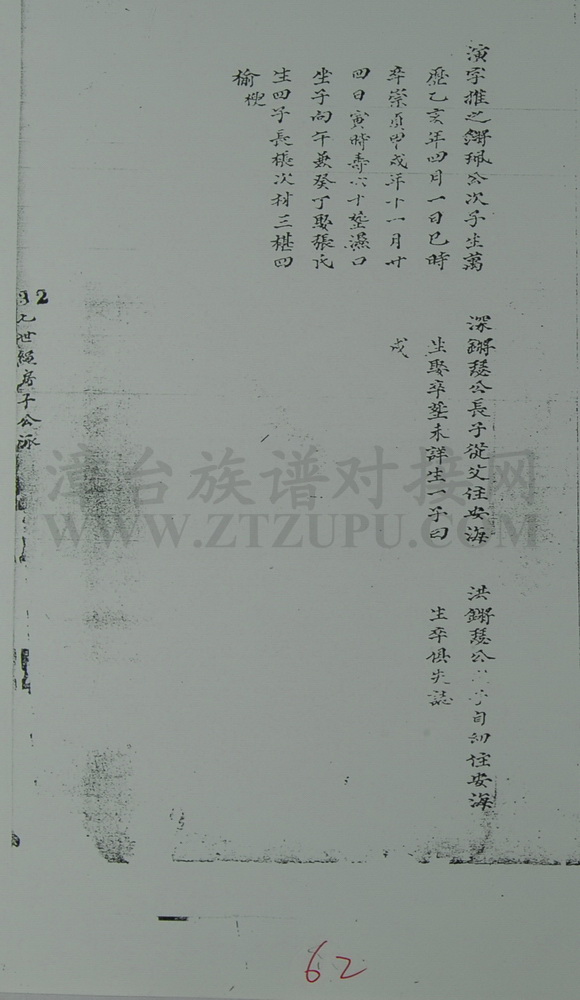 演字推之錡珮公次子生萬
歷乙亥年四月一日巳時
卒崇貞甲戌年十一月廿
四日寅時壽六十塟濕口
坐子向午兼癸丁娶張氏
生四子長榱次材三椹四
榆楩
深錡瑟公長子從父住安海
生娶卒塟未詳生一子曰
戍
洪錡瑟公 子自幼住安海
生卒俱失誌
32
七世 房子公派
漳台族谱对接网
WWW.ZTZUPU.COM
62